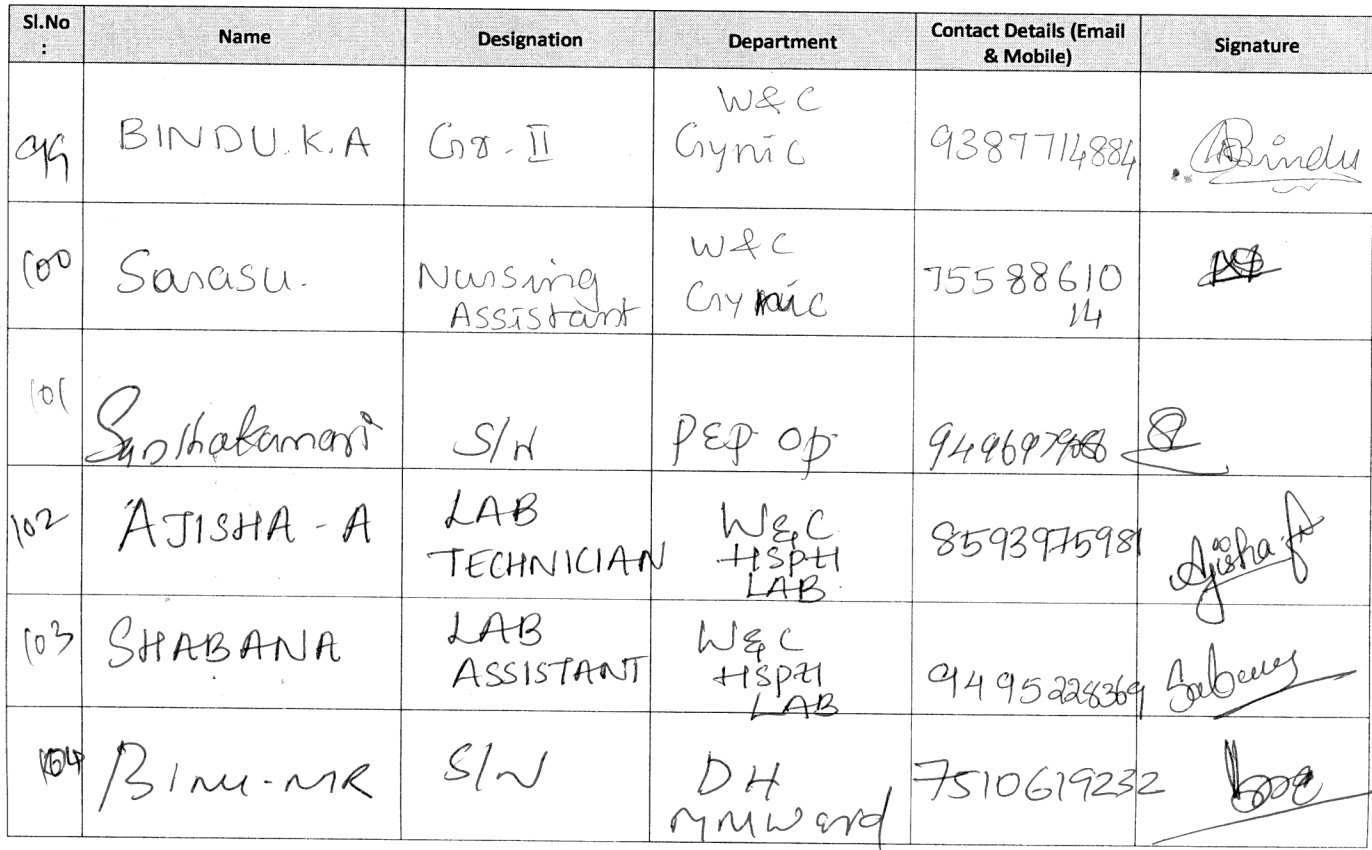 Sl.No : Name Designation Department Contact Details (Email & Mobile) Signature
99 BINDU.K.A Gr. II W&C Gynic 9387714884 Bindu
100 Sarasu. Nursing Assistant W&C Gynic 7558861014
101 S/N PEP OP
102 AJISHA - A LAB TECHNICIAN W&C HSPH LAB 8593975981 Ajisha A
103 SHABANA LAB ASSISTANT W&C HSPH LAB 9495228369
104 BINU-MR S/N DH MMWard 7510619232